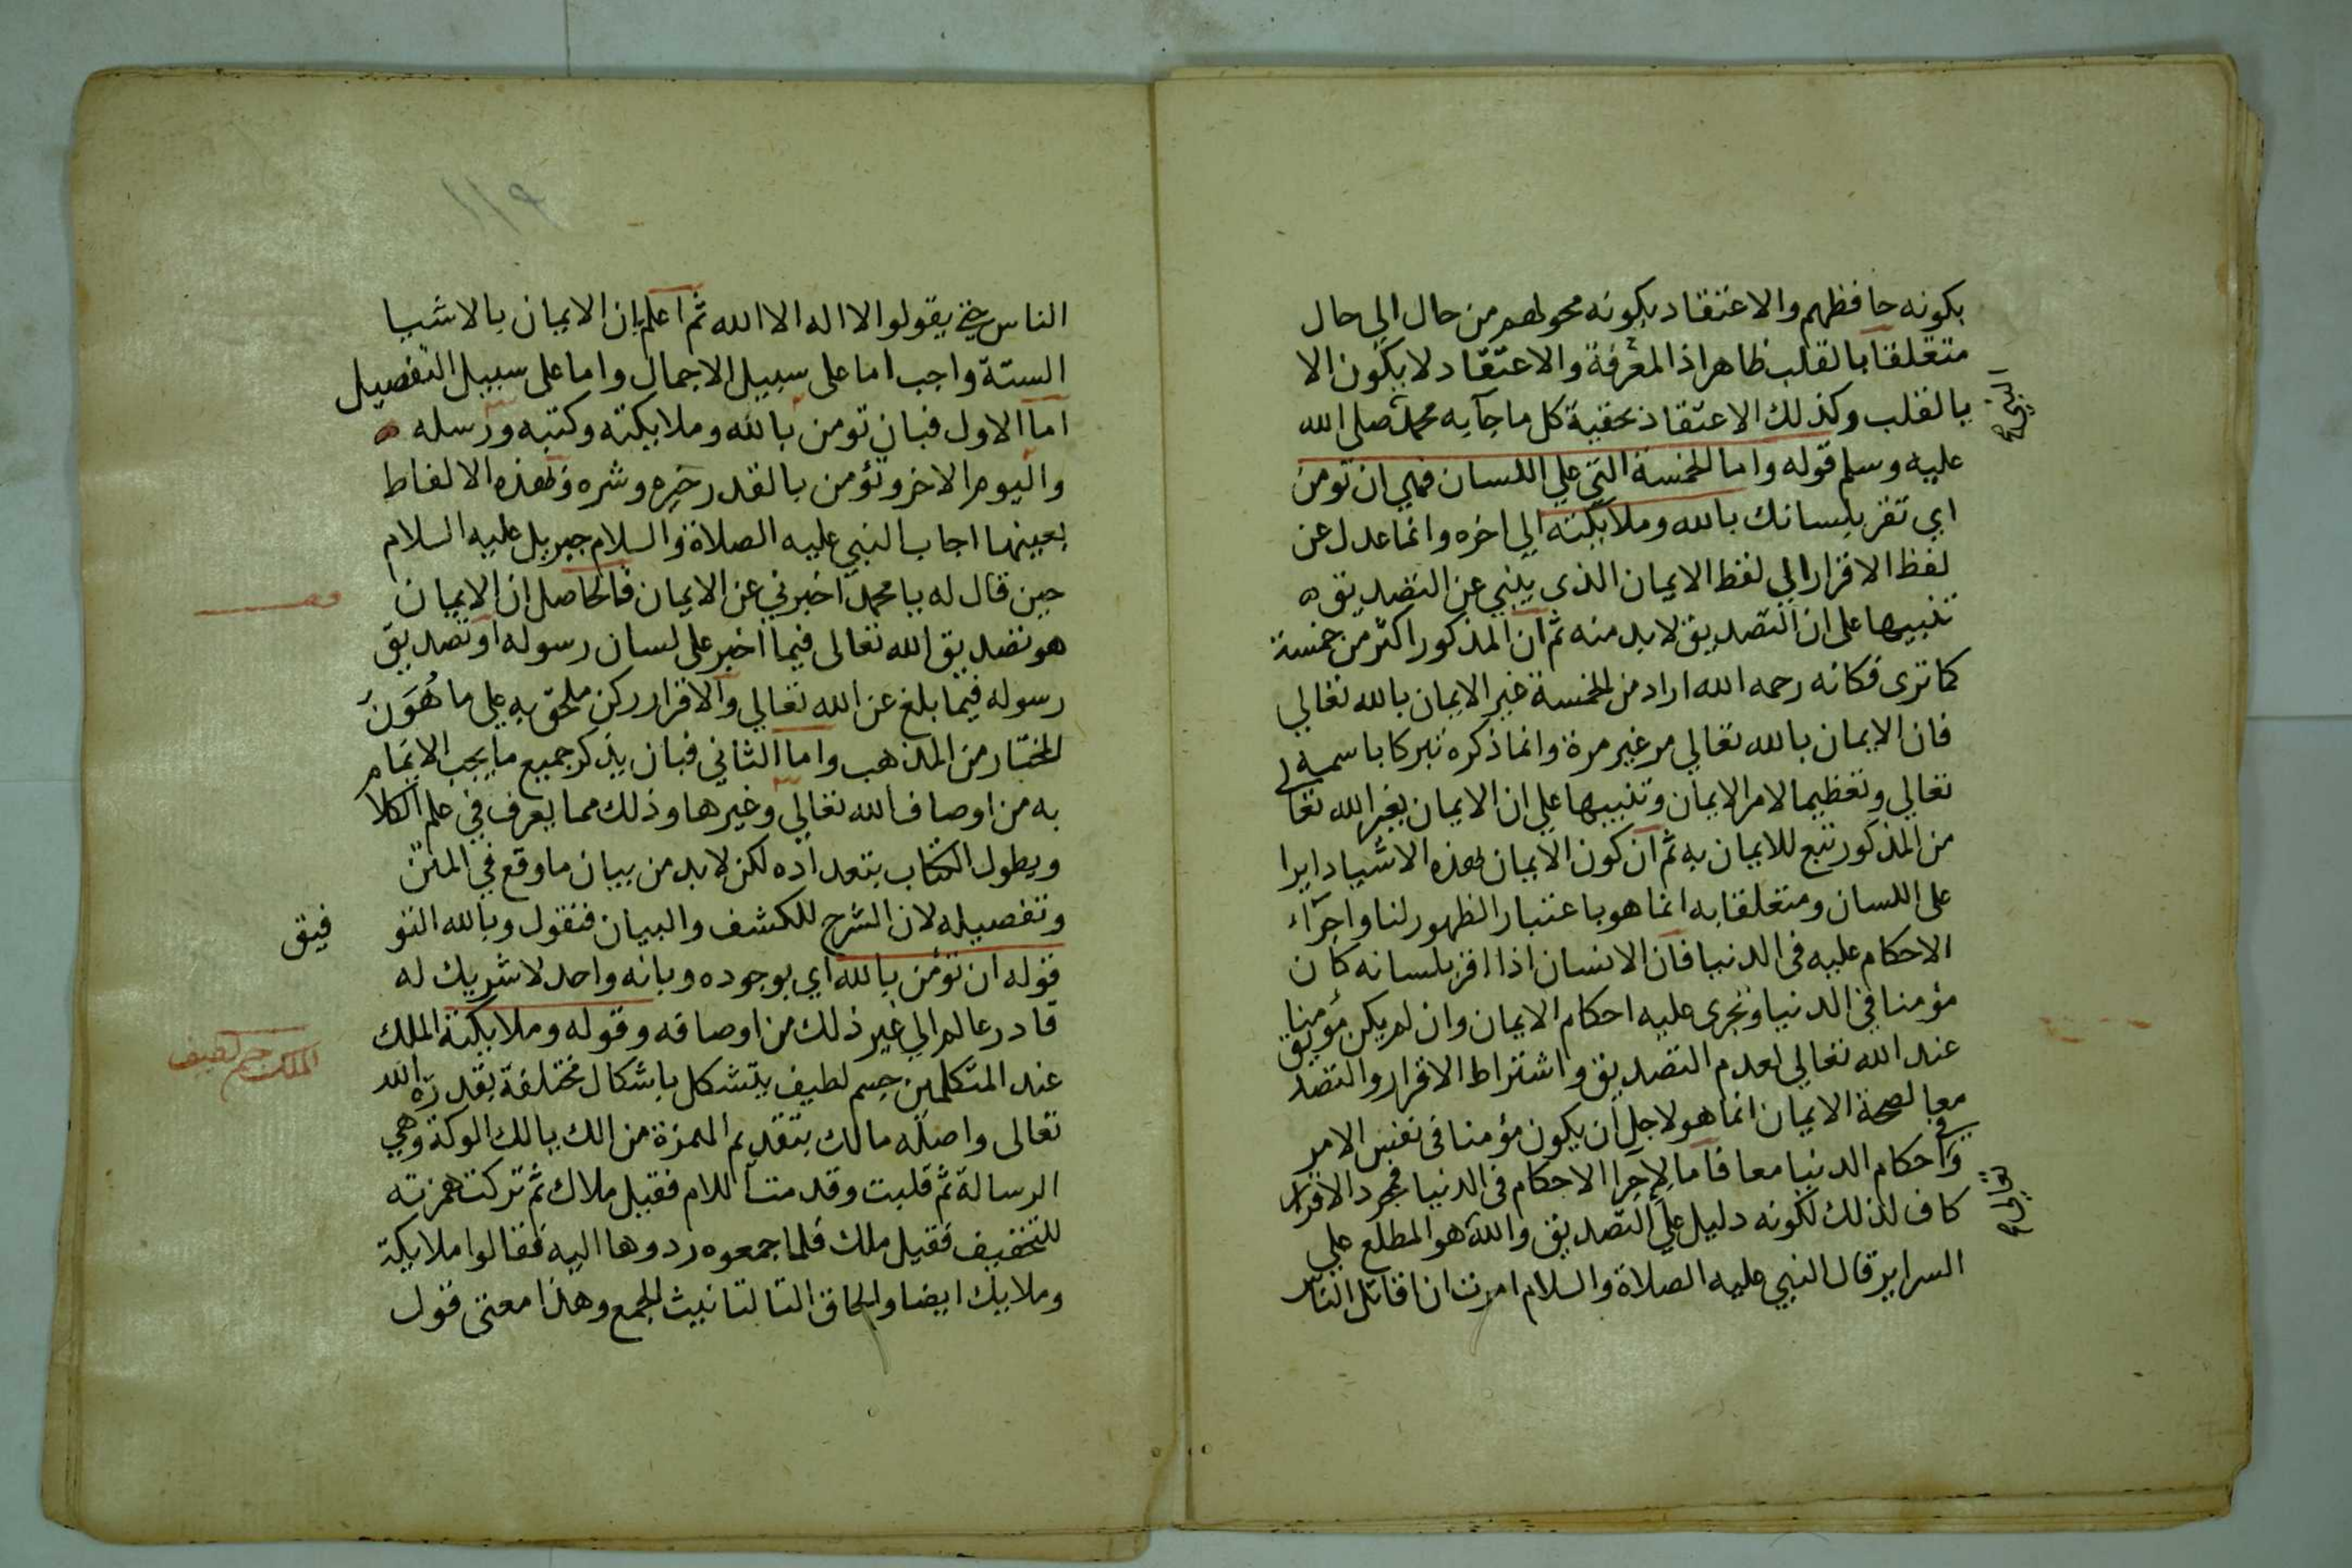 بكونه حافظهم والاعتقاد بكونه محولهم من حال الي حال
متعلقا بالقلب ظاهر اذ المعرفة والاعتقاد لا يكون الا
بالقلب وكذلك الاعتقاد بحقية كل ما جآ به محمد صلى الله
عليه وسلم قوله واما الخمسة التي علي اللسان فهي ان تومن
اي تقر بلسانك بالله وملايكته الي اخره وانما عدل عن
لفظ الاقرار الي لفظ الايمان الذى ينبي عن التصديق
تنبيها على ان التصديق لابد منه ثم ان المذكور اكثر من خمسة
كما ترى فكانه رحمه الله اراد من الخمسة غير الايمان بالله تعالي
فان الايمان بالله تعالي مر غير مرة وانما ذكره تبركا باسمه
تعالي وتعظيما لامر الايمان وتنبيها علي ان الايمان بغير الله تعالي
من المذكور تبع للايمان به ثم ان كون الايمان بهذه الاشيا دايرا
على اللسان ومتعلقا به انما هو باعتبار الظهور لنا واجرآء
الاحكام عليه فى الدنيا فان الانسان اذا اقر بلسانه كان
مؤمنا فى الدنيا وتجرى عليه احكام الايمان وان لم يكن مؤمنا
عند الله تعالي لعدم التصديق واشتراط الاقرار والتصديق
معا لصحة الايمان انما هو لاجل ان يكون مؤمنا فى نفس الامر
وفي احكام الدنيا معا فاما لاجرا الاحكام فى الدنيا فمجرد الاقرار
كاف لذلك لكونه دليل علي التصديق والله هو المطلع علي
السراير قال النبي عليه الصلاة والسلام امرت ان اقاتل الناس
الناس حتي يقولوا لا اله الا الله ثم اعلم بان الايمان بالاشيا
الستة واجب اما على سبيل الاجمال واما على سبيل التفصيل
اما الاول فبان تومن بالله وملايكته وكتبه ورسله
واليوم الاخر وتؤمن بالقدر خيره وشره وبهذه الالفاظ
بعينها اجاب النبي عليه الصلاة والسلام جبريل عليه السلام
حين قال له يا محمد اخبرني عن الايمان فالحاصل ان الايمان
هو تصديق الله تعالى فيما اخبر على لسان رسوله او تصديق
رسوله فيما بلغ عن الله تعالي والاقرار ركن ملحق به علي ما هو من
المختار من المذهب واما الثاني فبان يذكر جميع ما يجب الايمام
به من اوصاف الله تعالي وغيرها وذلك مما يعرف في علم الكلا
ويطول الكتاب بتعداده لكن لابد من بيان ما وقع في المتن
وتفصيله لان الشرح للكشف والبيان فنقول وبالله التو فيق
قوله ان تؤمن بالله اي بوجوده وبانه واحد لا شريك له
قادر عالم الي غير ذلك من اوصافه وقوله وملايكته الملك
الملك جسم لطيف
عند المتكلمين جسم لطيف يتشكل باشكال مختلفة بقدرة الله
تعالى واصله مالك بتقديم الهمزة من الك يالك الوكة وهي
الرسالة ثم قلبت وقدمت اللام فقيل ملاك ثم تركت همزته
للتخفيف فقيل ملك فلما جمعوه ردوها اليه فقالوا ملايكة
وملايك ايضا والحاق التا لتانيث الجمع وهذا معنى قول